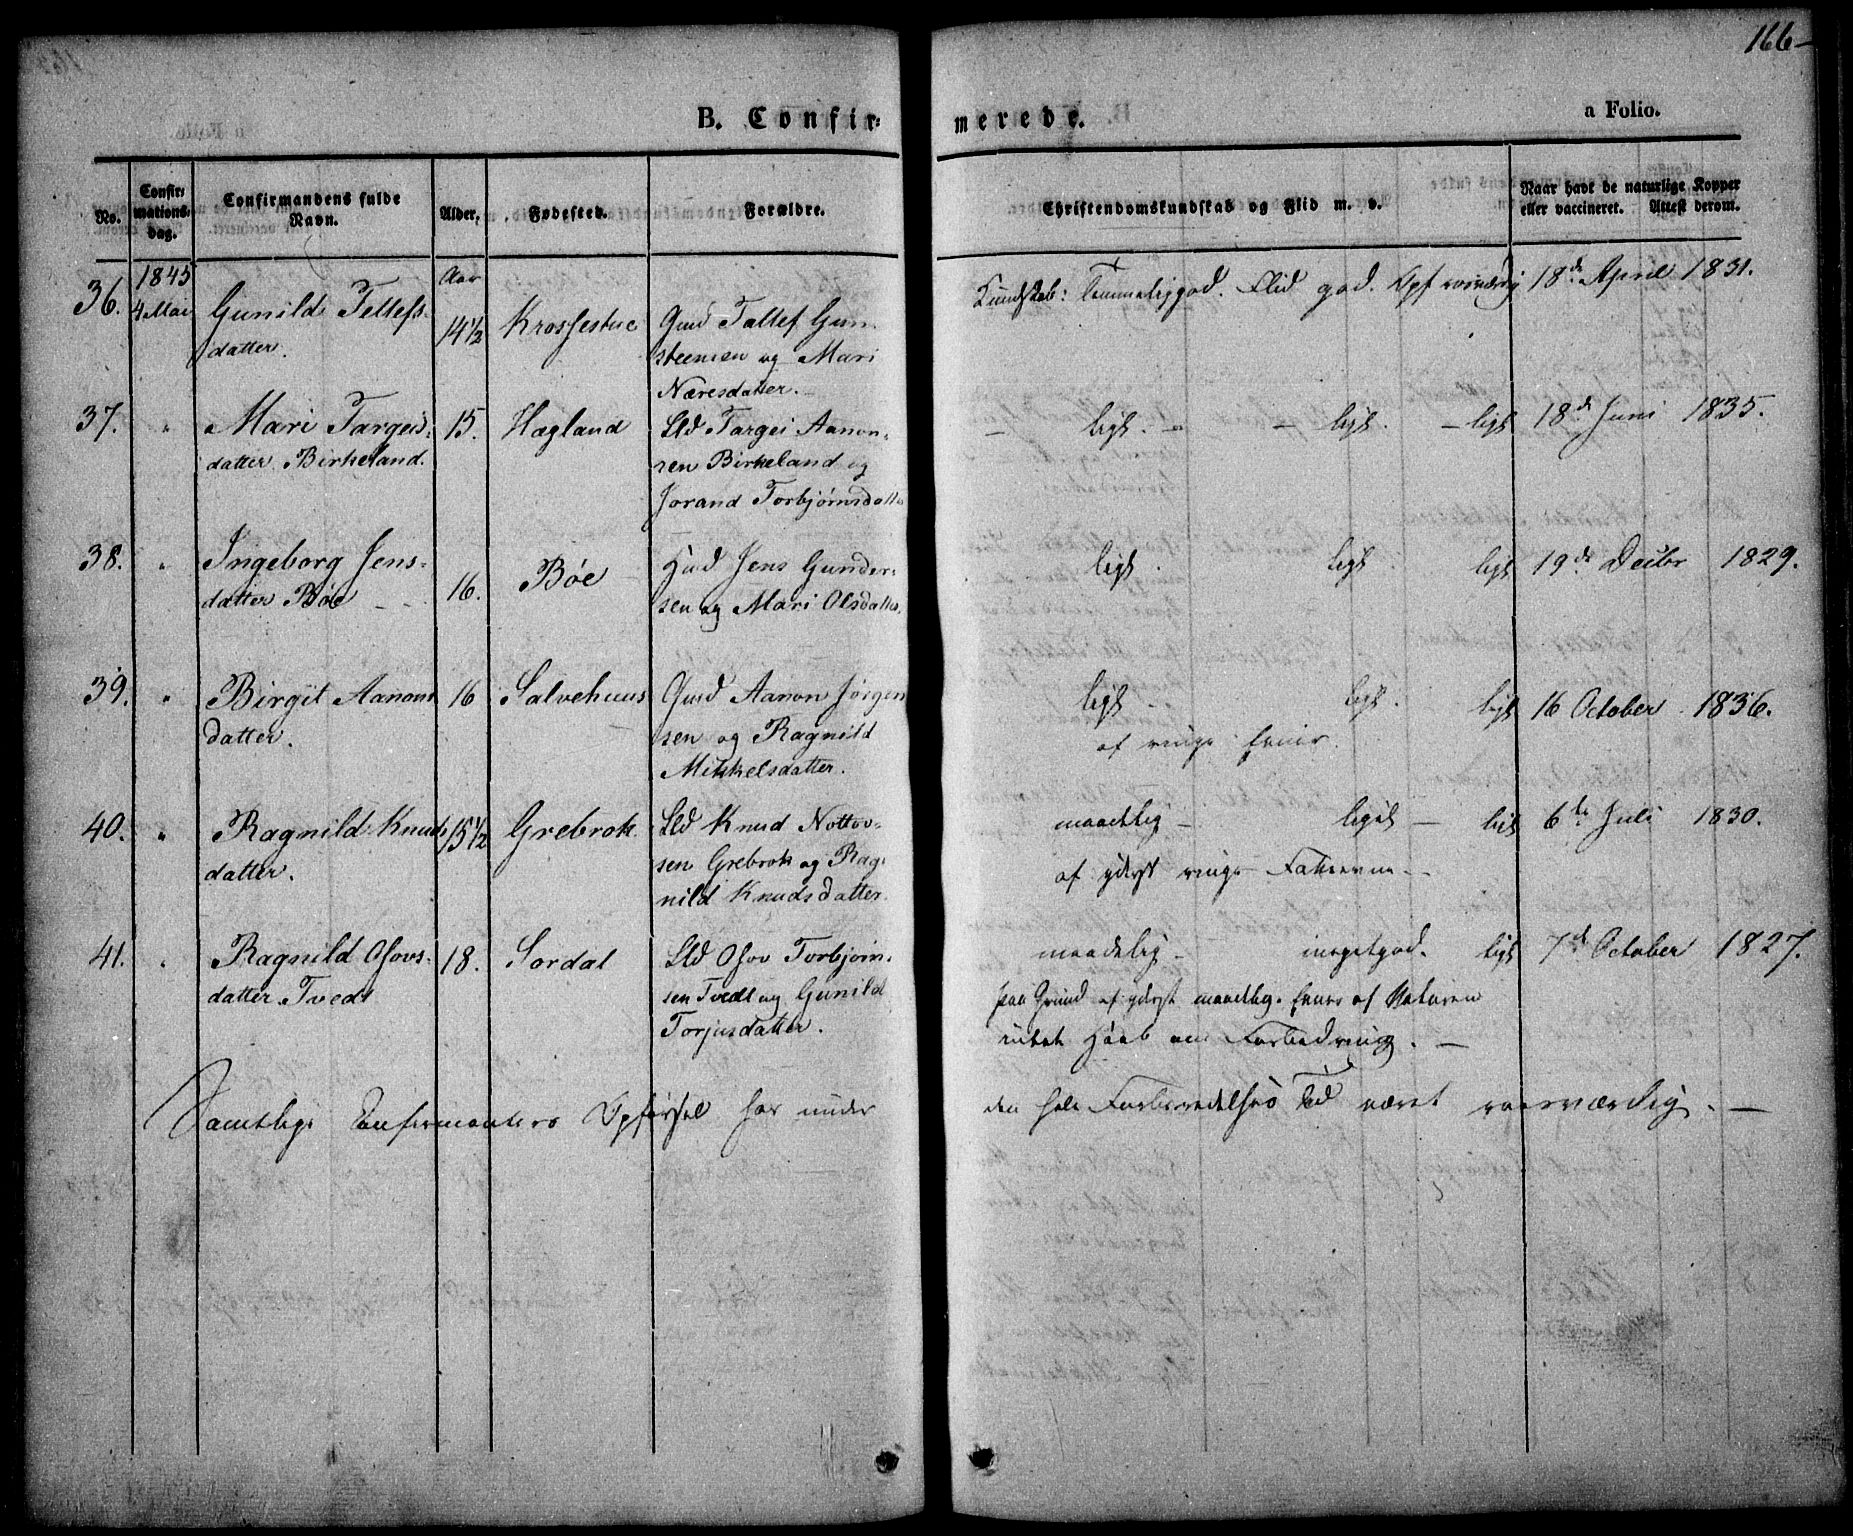 166-
B. Confir=
merede.
a Folio.
No.
Confir=
mations=
dag.
Confirmandens fulde
Navn.
Alder.
Fødested.
Forældre.
Christendomskundskab og Flid m. v.
Naar havt de naturlige Kopper
eller vaccineret. Attest derom.
36.
1845
4 Mai
Gunild Tellefs=
datter.
Aar
14½
Krossestue
Gmd Tallef Gun
steensen og Mari
Næresdatter.
Kundskab: Temmeliggod. Flid god. Opf roesværdig
18de April 1831.
37.
"
Mari Targeis=
datter Birkeland.
15.
Hægland
Lld Targei Aanon=
sen Birkeland og
Jorand Torbjørnsdatter
- ligt. - - ligt. - ligt
18de Juni 1835.
38.
"
Ingeborg Jens=
datter Bøe
16.
Bøe
Hmd Jens Gunder=
sen og Mari Olsdatter.
ligt. ligt. ligt
19de Decbr 1829.
39.
"
Birgit Aanons
datter.
16
Salvehuus
Gmd Aanon Jørgen
sen og Ragnild
Mikkelsdatter.
ligt. ligt. ligt
af ringe Evner.
16 October 1836.
40.
"
Ragnild Knuds
datter.
15½
Grebrok
Lld Knud Nottov=
sen Grebrok og Rag=
nild Knudsdatter
maadelig - ligt - ligt
af yderst ringe Fatteevne. -
6te Juli 1830.
41.
"
Ragnild Osovs=
datter Tvedt
18.
Sordal
Lld Osov Torbjørn=
sen Tvedt og Gunild
Torjusdatter.
maadelig - megetgod. ligt
paa Grund af yderst maadelig. Evner af Naturen
intet Haab om Forbedring. -
7de October 1827.
Samtlige Confirmanders Opførsel har under
den hele Forberedelses Tid været roesværdig. -